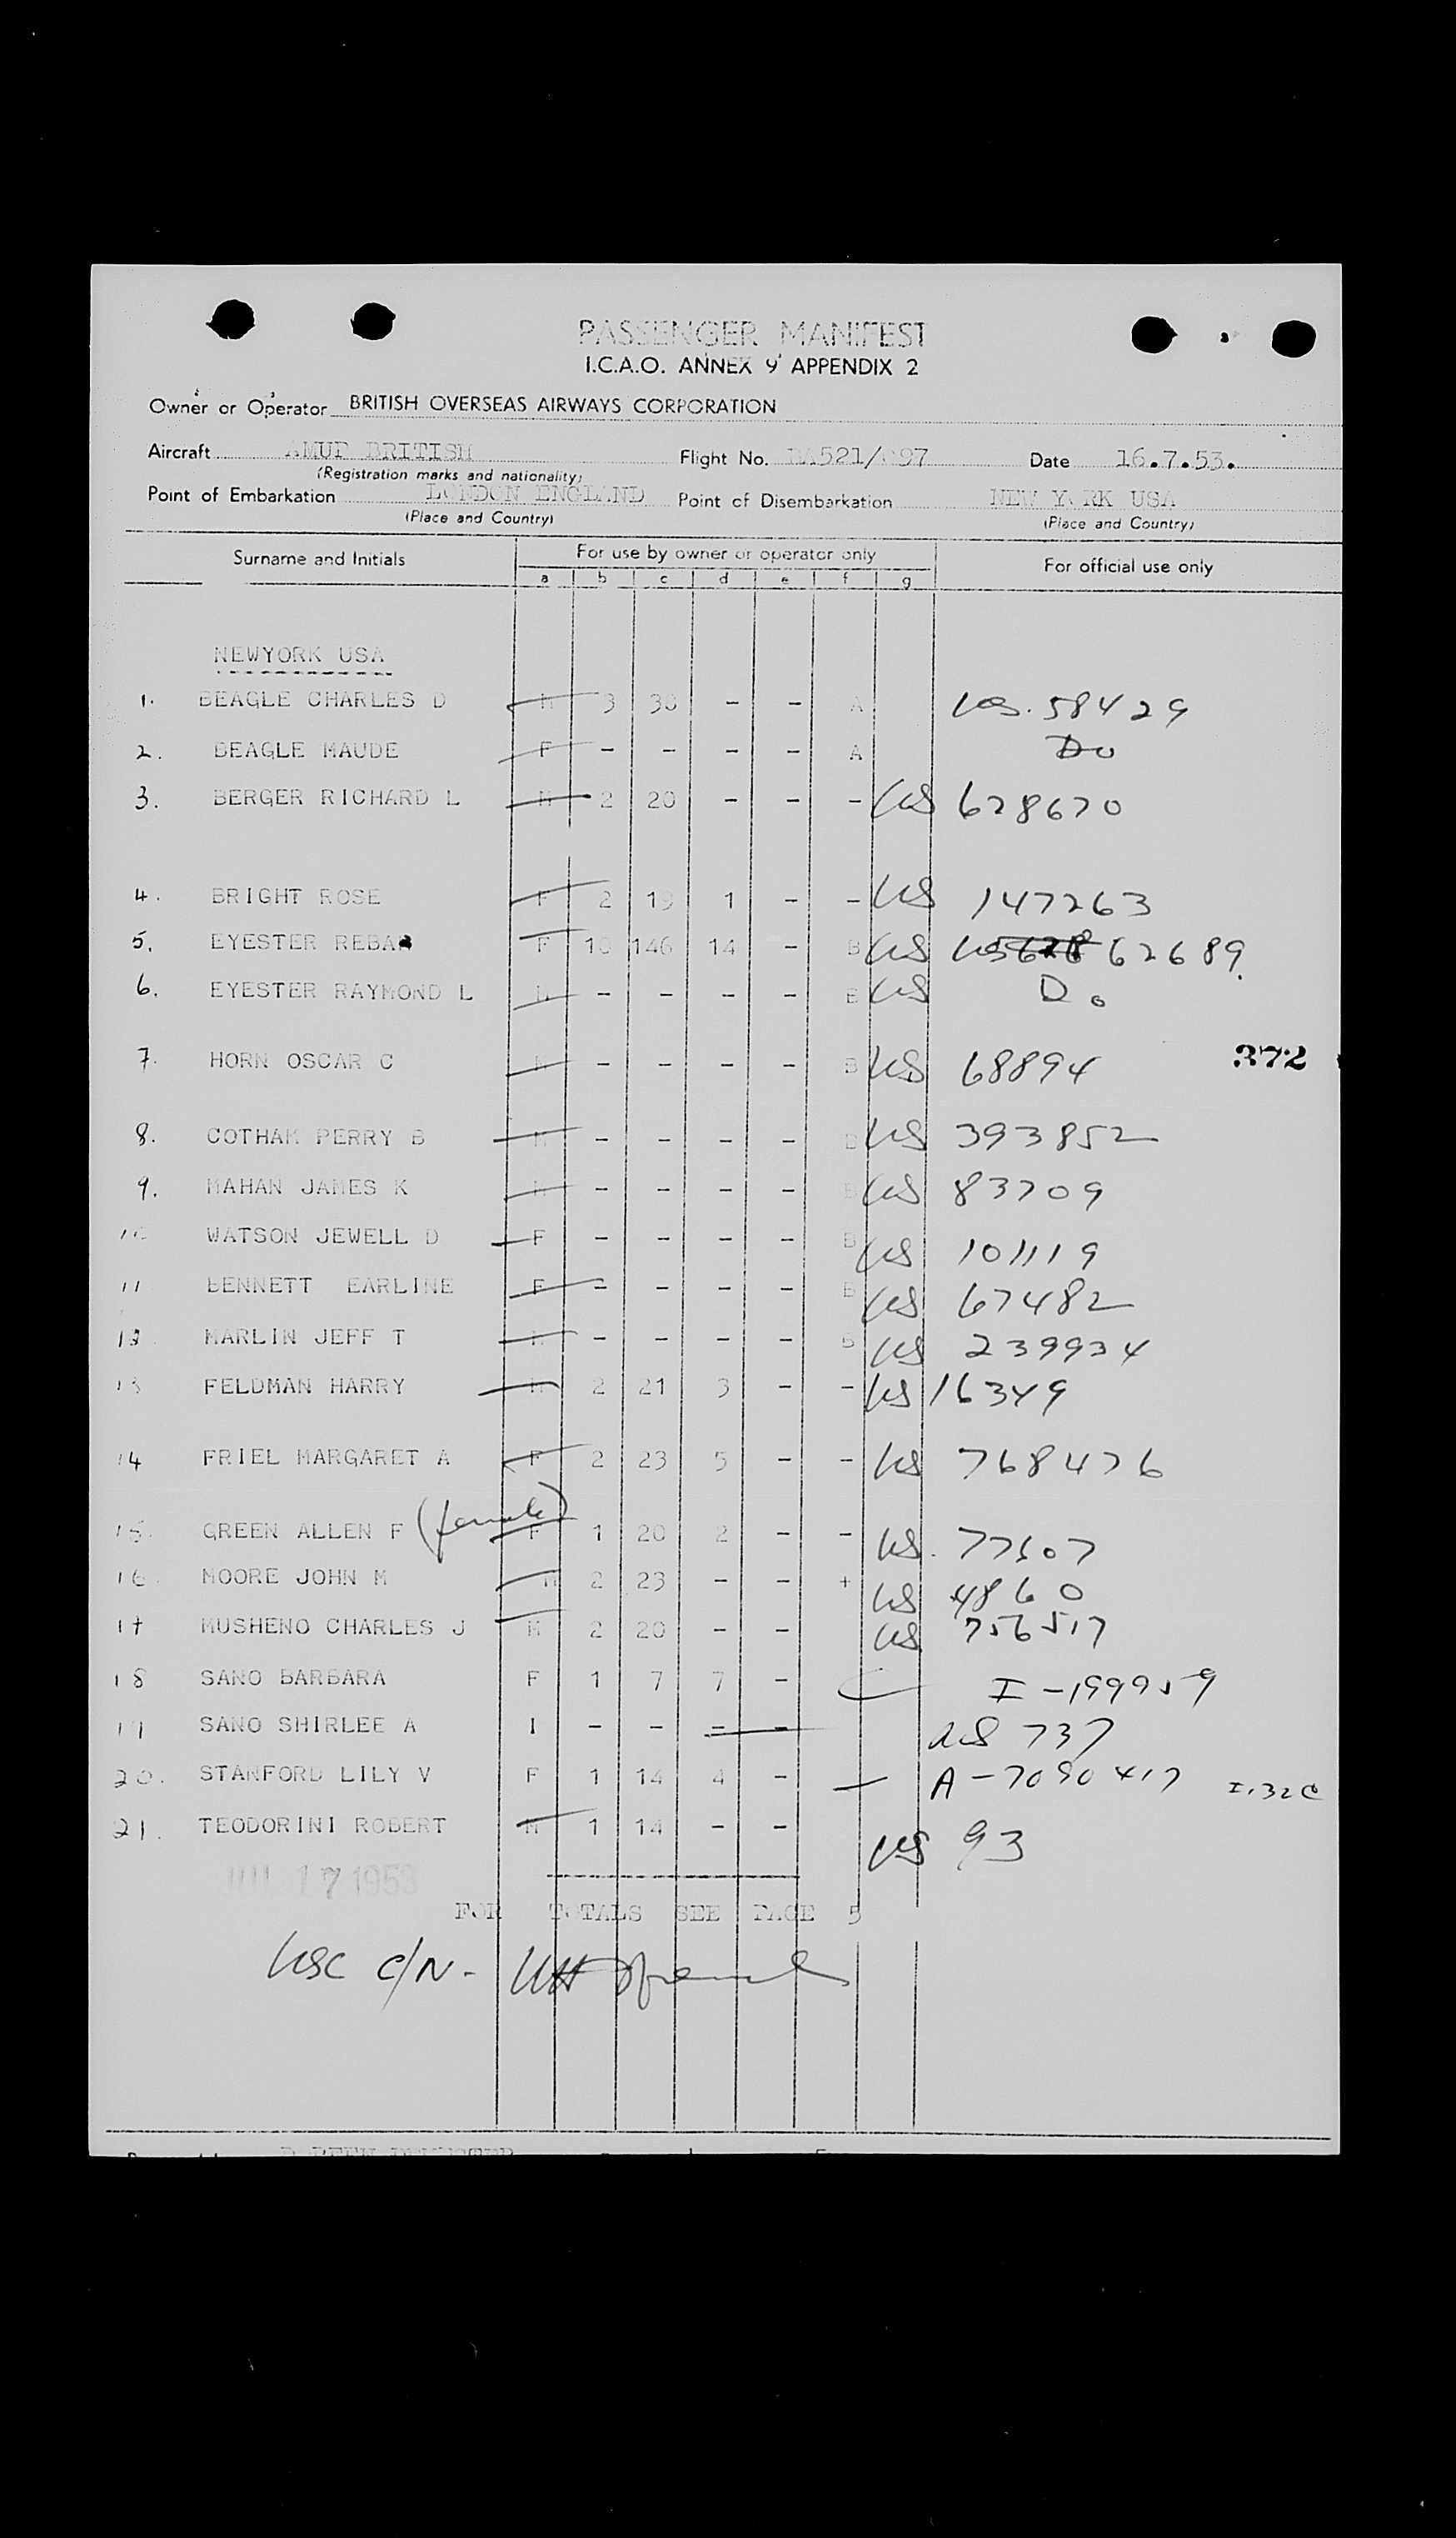 PASSENGER MANIFEST
I.C.A.O. ANNEX 9 APPENDIX 2
Owner or Operator BRITISH OVERSEAS AIRWAYS CORPORATION
Aircraft AMUD BRITISH Flight No. BA521/ 97 Date 16.7.53.
(Registration marks and nationality)
Point of Embarkation LONDON ENGLAND Point of Disembarkation NEW YORK USA
(Place and Country) (Place and Country)
Surname and Initials For use by owner or operator only For official use only
a b c d e f g
NEWYORK USA
1. BEAGLE CHARLES D M 3 30 - - A US. 58429
2. BEAGLE MAUDE F - - - - A Do
3. BERGER RICHARD L M 2 20 - - - US 628670
4. BRIGHT ROSE F 2 19 1 - - US 147263
5. EYESTER REBA F 10 146 14 - B US 62689
6. EYESTER RAYMOND L M - - - - B US Do
7. HORN OSCAR C M - - - - B US 68894
372
8. COTHAM PERRY B M - - - - B US 393852
9. MAHAN JAMES K M - - - - B US 83709
10 WATSON JEWELL D F - - - - B US 101119
11 BENNETT EARLINE F - - - - B US 67482
12 MARLIN JEFF T M - - - - B US 239934
13 FELDMAN HARRY M 2 21 3 - - US 16349
14 FRIEL MARGARET A F 2 23 5 - - US 768476
15. GREEN ALLEN F (female) F 1 20 2 - - US. 77607
16. MOORE JOHN M M 2 23 - - + US 4860
17 MUSHENO CHARLES J M 2 20 - - US 756517
18 SANO BARBARA F 1 7 7 - I-199959
19 SANO SHIRLEE A I - - - - US 737
20. STANFORD LILY V F 1 14 4 - A-7090417 I.32C
21. TEODORINI ROBERT M 1 14 - - US 93
JUL 17 1953
FOR TOTALS SEE PAGE 5
USC C/N-